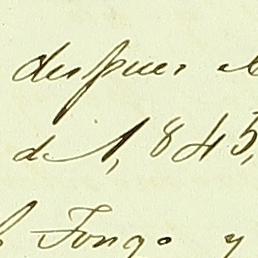 despues
de 1,845,
Fongo y